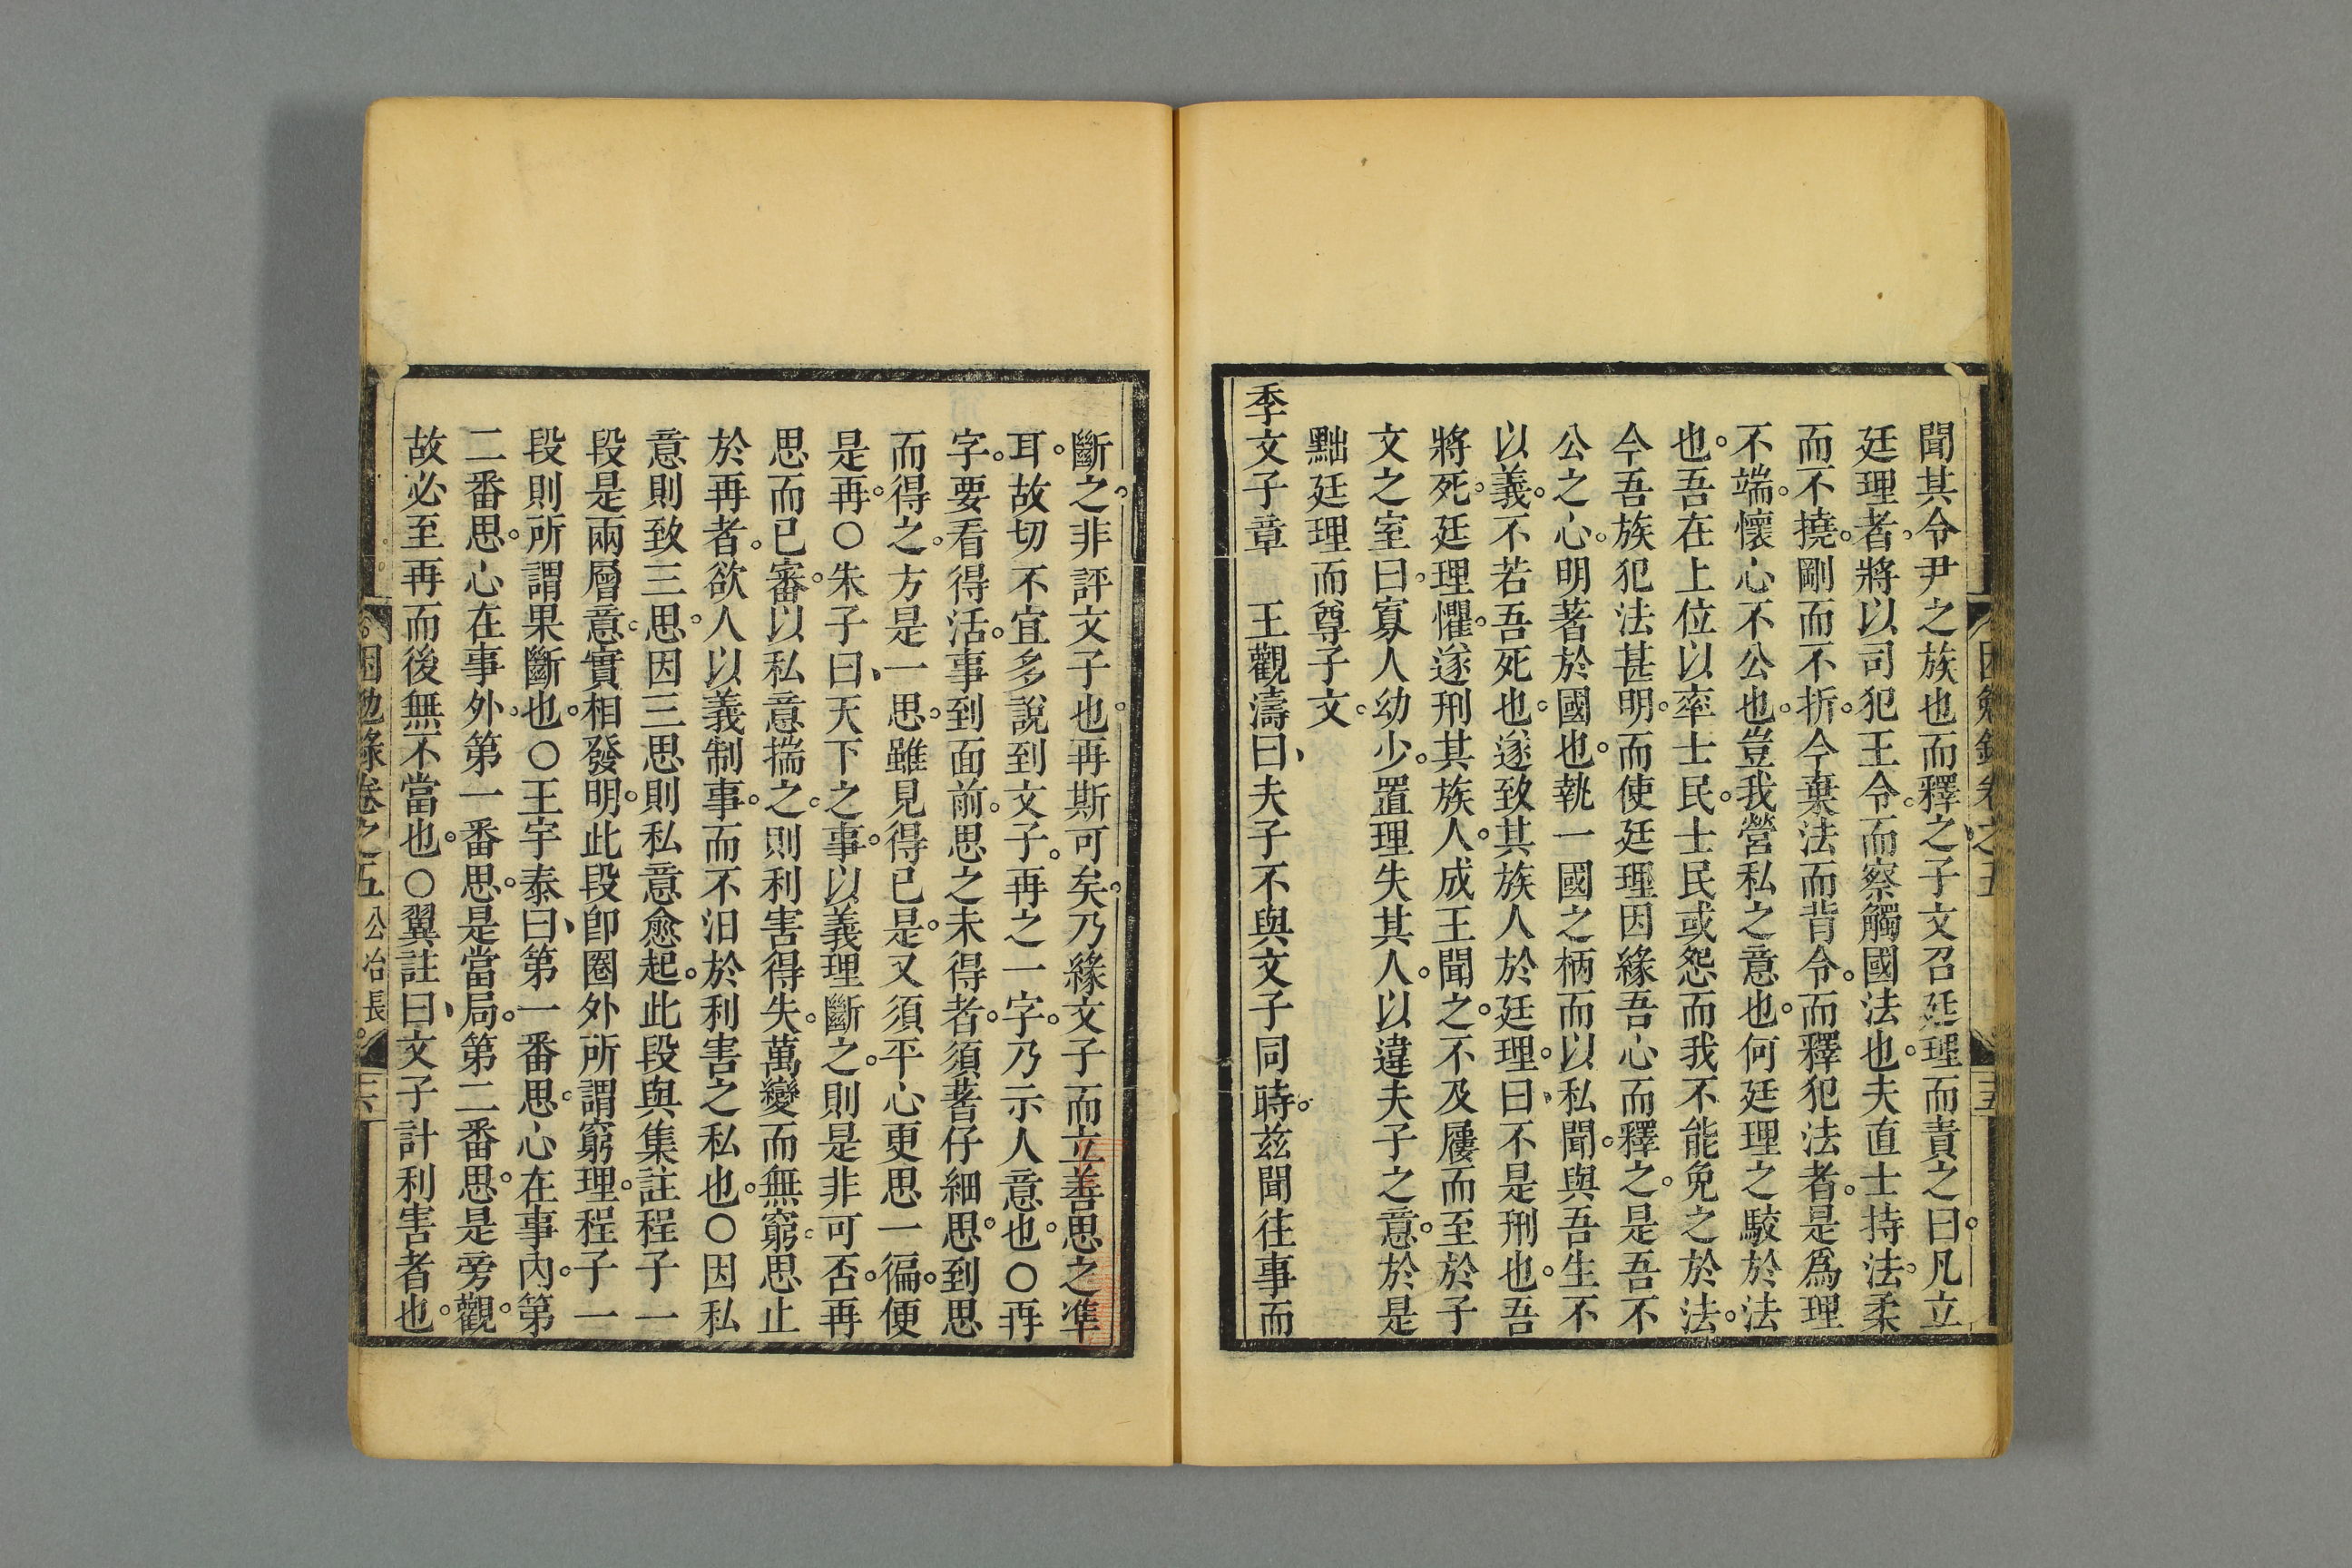 聞其令尹之族也而釋之子文召廷理而責之曰凡立
廷理者將以司犯王令而察觸國法也夫直士持法柔
而不撓剛而不折今棄法而背令而釋犯法者是爲理
不端懷心不公也豈我營私之意也何廷理之駮於法
也吾在上位以率士民士民或怨而我不能免之於法
今吾族犯法甚明而使廷理因緣吾心而釋之是吾不
公之心明著於國也執一國之柄而以私聞與吾生不
以義不若吾死也遂致其族人於廷理曰不是刑也吾
將死廷理懼遂刑其族人成王聞之不及屨而至於子
文之室曰寡人幼少置理失其人以違夫子之意於是
黜廷理而尊子文
季文子章　王觀濤曰夫子不與文子同時茲聞往事而
斷之非評文子也再斯可矣乃緣文子而立善思之準
耳故切不宜多說到文子再之一字乃示人意也○再
字要看得活事到面前思之未得者須著仔細思到思
而得之方是一思雖見得已是又須平心更思一徧便
是再○朱子曰天下之事以義理斷之則是非可否再
思而已審以私意揣之則利害得失萬變而無窮思止
於再者欲人以義制事而不汨於利害之私也○因私
意則致三思因三思則私意愈起此段與集註程子一
段是兩層意實相發明此段卽圈外所謂窮理程子一
段則所謂果斷也○王宇泰曰第一番思心在事內第
二番思心在事外第一番思是當局第二番思是旁觀
故必至再而後無不當也○翼註曰文子計利害者也
困勉錄卷之五 公冶長